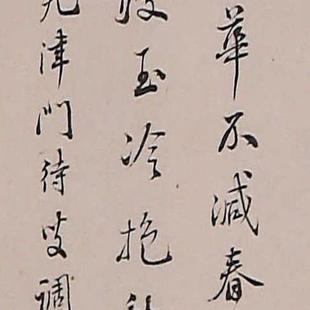 華不減春
玉冷抱
津門待安調